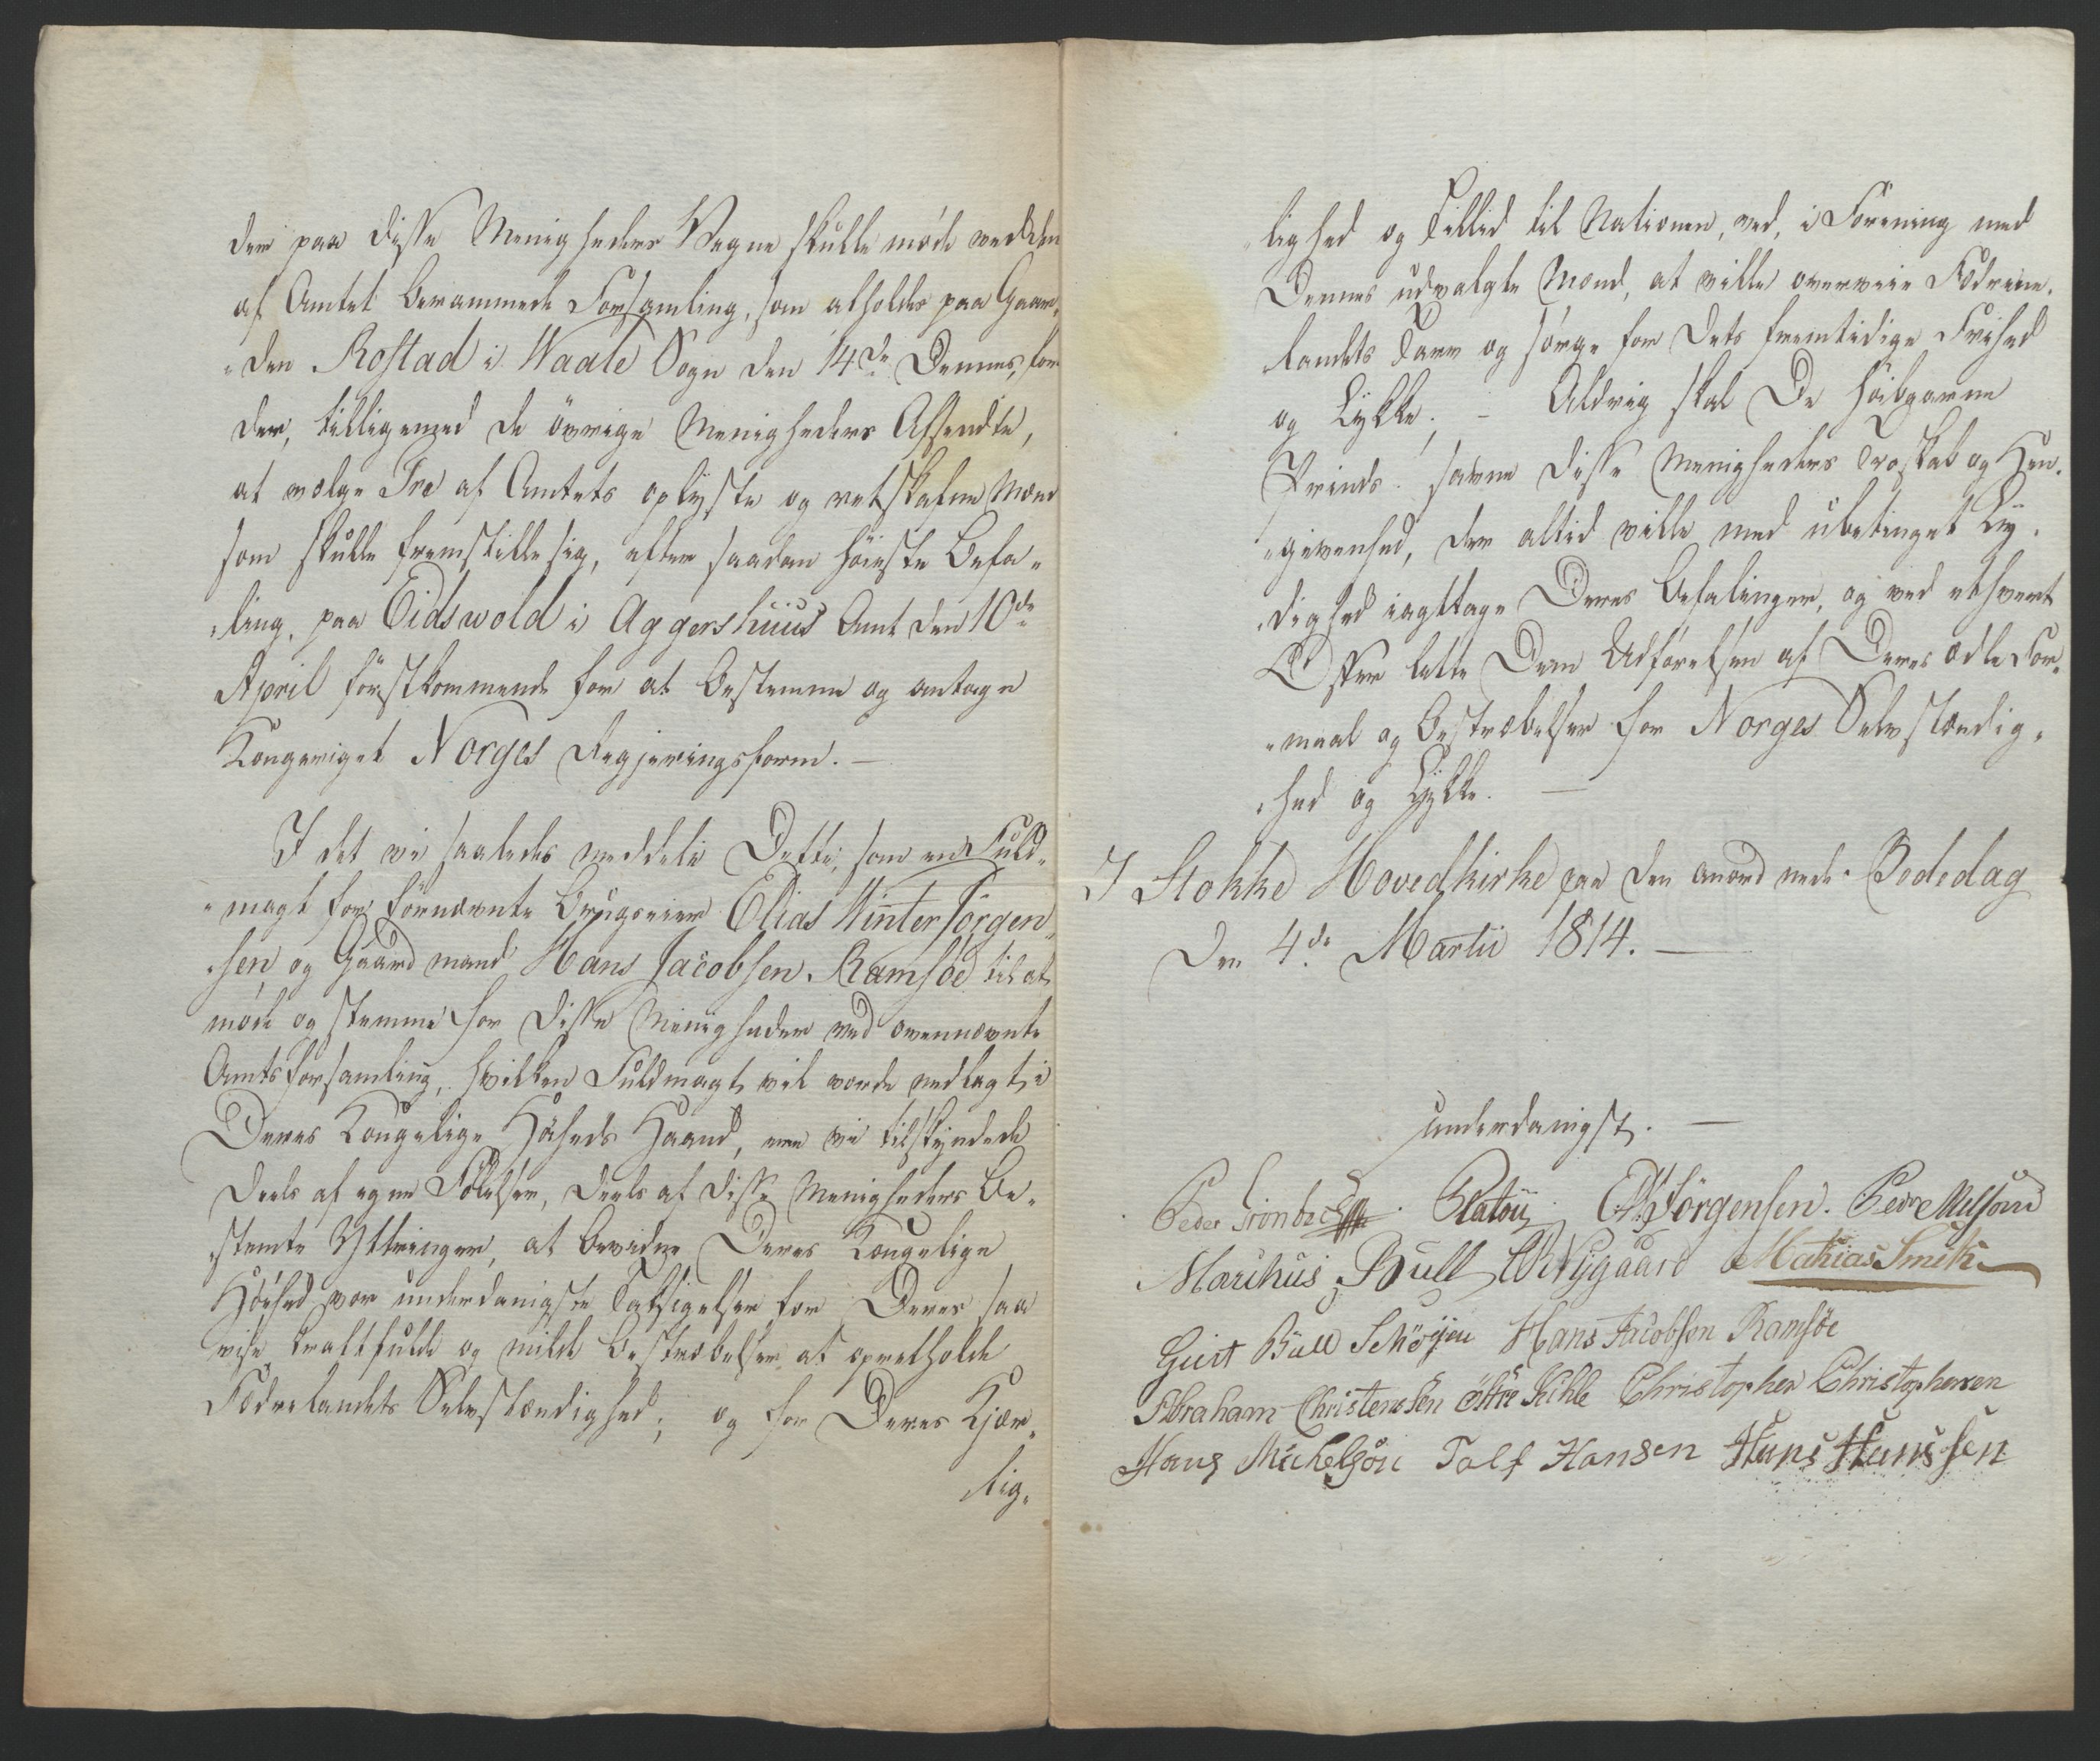 der paa disse Menigheders Vegne skulle møde ved den
af Amtet berammede Forsamling, som afholdes paa Gaar„
„den Rostad i Waale Sogn den 14de Dennes, for
der, tilligemed de övrige Menigheders Afsendte,
at vælge Tre af Amtets oplyste og retskafne Mænd
som skulle fremstille sig, efter saadan höieste Befa„
„ling, paa Eidswold i Aggershuus Amt den 10de
April förstkommende for at bestemme og antage
Kongeriget Norges Regjeringsform. —
I det vi saaledes meddele Dette, som en Fuld„
„magt for fornævnte Brugseier Elias Winter Jörgen„
„sen og Gaardmand Hans Jacobsen Ramsöe til at
møde og stemme for disse Menigheder ved ovennævnte
Amtsforsamling, hvilken Fuldmagt vil vorde nedlagt i
Deres Kongelige Höiheds Haand, ere vi tilskyndede
deels af egne Fölelser, deels af disse Menigheders be„
„stemte Yttringer, at bevidne Deres Kongelige
Höihed vor underdanigste Taksigelse for Deres saa
vise kraftfulde og milde Bestræbelser at opretholde
Födrelandets Selvstændighed; og for Deres Kjær„
lig„
„lighed og Tillid til Nationen, ved, i Forening med
Dennes udvalgte Mænd, at ville overveie Födrene„
„landets Tarv og sörge for dets fremtidige Frihed
og Lykke. – Aldrig skal De höibaarne
Prinds! savne disse Menigheders Troskab og Hen„
„givenhed, der altid ville med ubetinget Ly„
„dighed iagttage Deres Befalinger, og ved ethvert
Offer lette Dem Udförelsen af Deres ædle For„
„maal og Bestræbelser for Norges Selvstændig„
„hed og Lykke. —
I Stokke Hovedkirke paa den anordnede Bededag
den 4de Martii 1814. —
underdanigst. —
Peder Grönbech Platou EWJörgensen. Peder Nielsøn
Marchus Bull Nygaard Mathias Smith
Giert Bull Hans Jacobsen Ramsöe
Abraham Christensen Christopher Christophersen
Hans Michelsøn Tolf Hansen Hans Hanssen